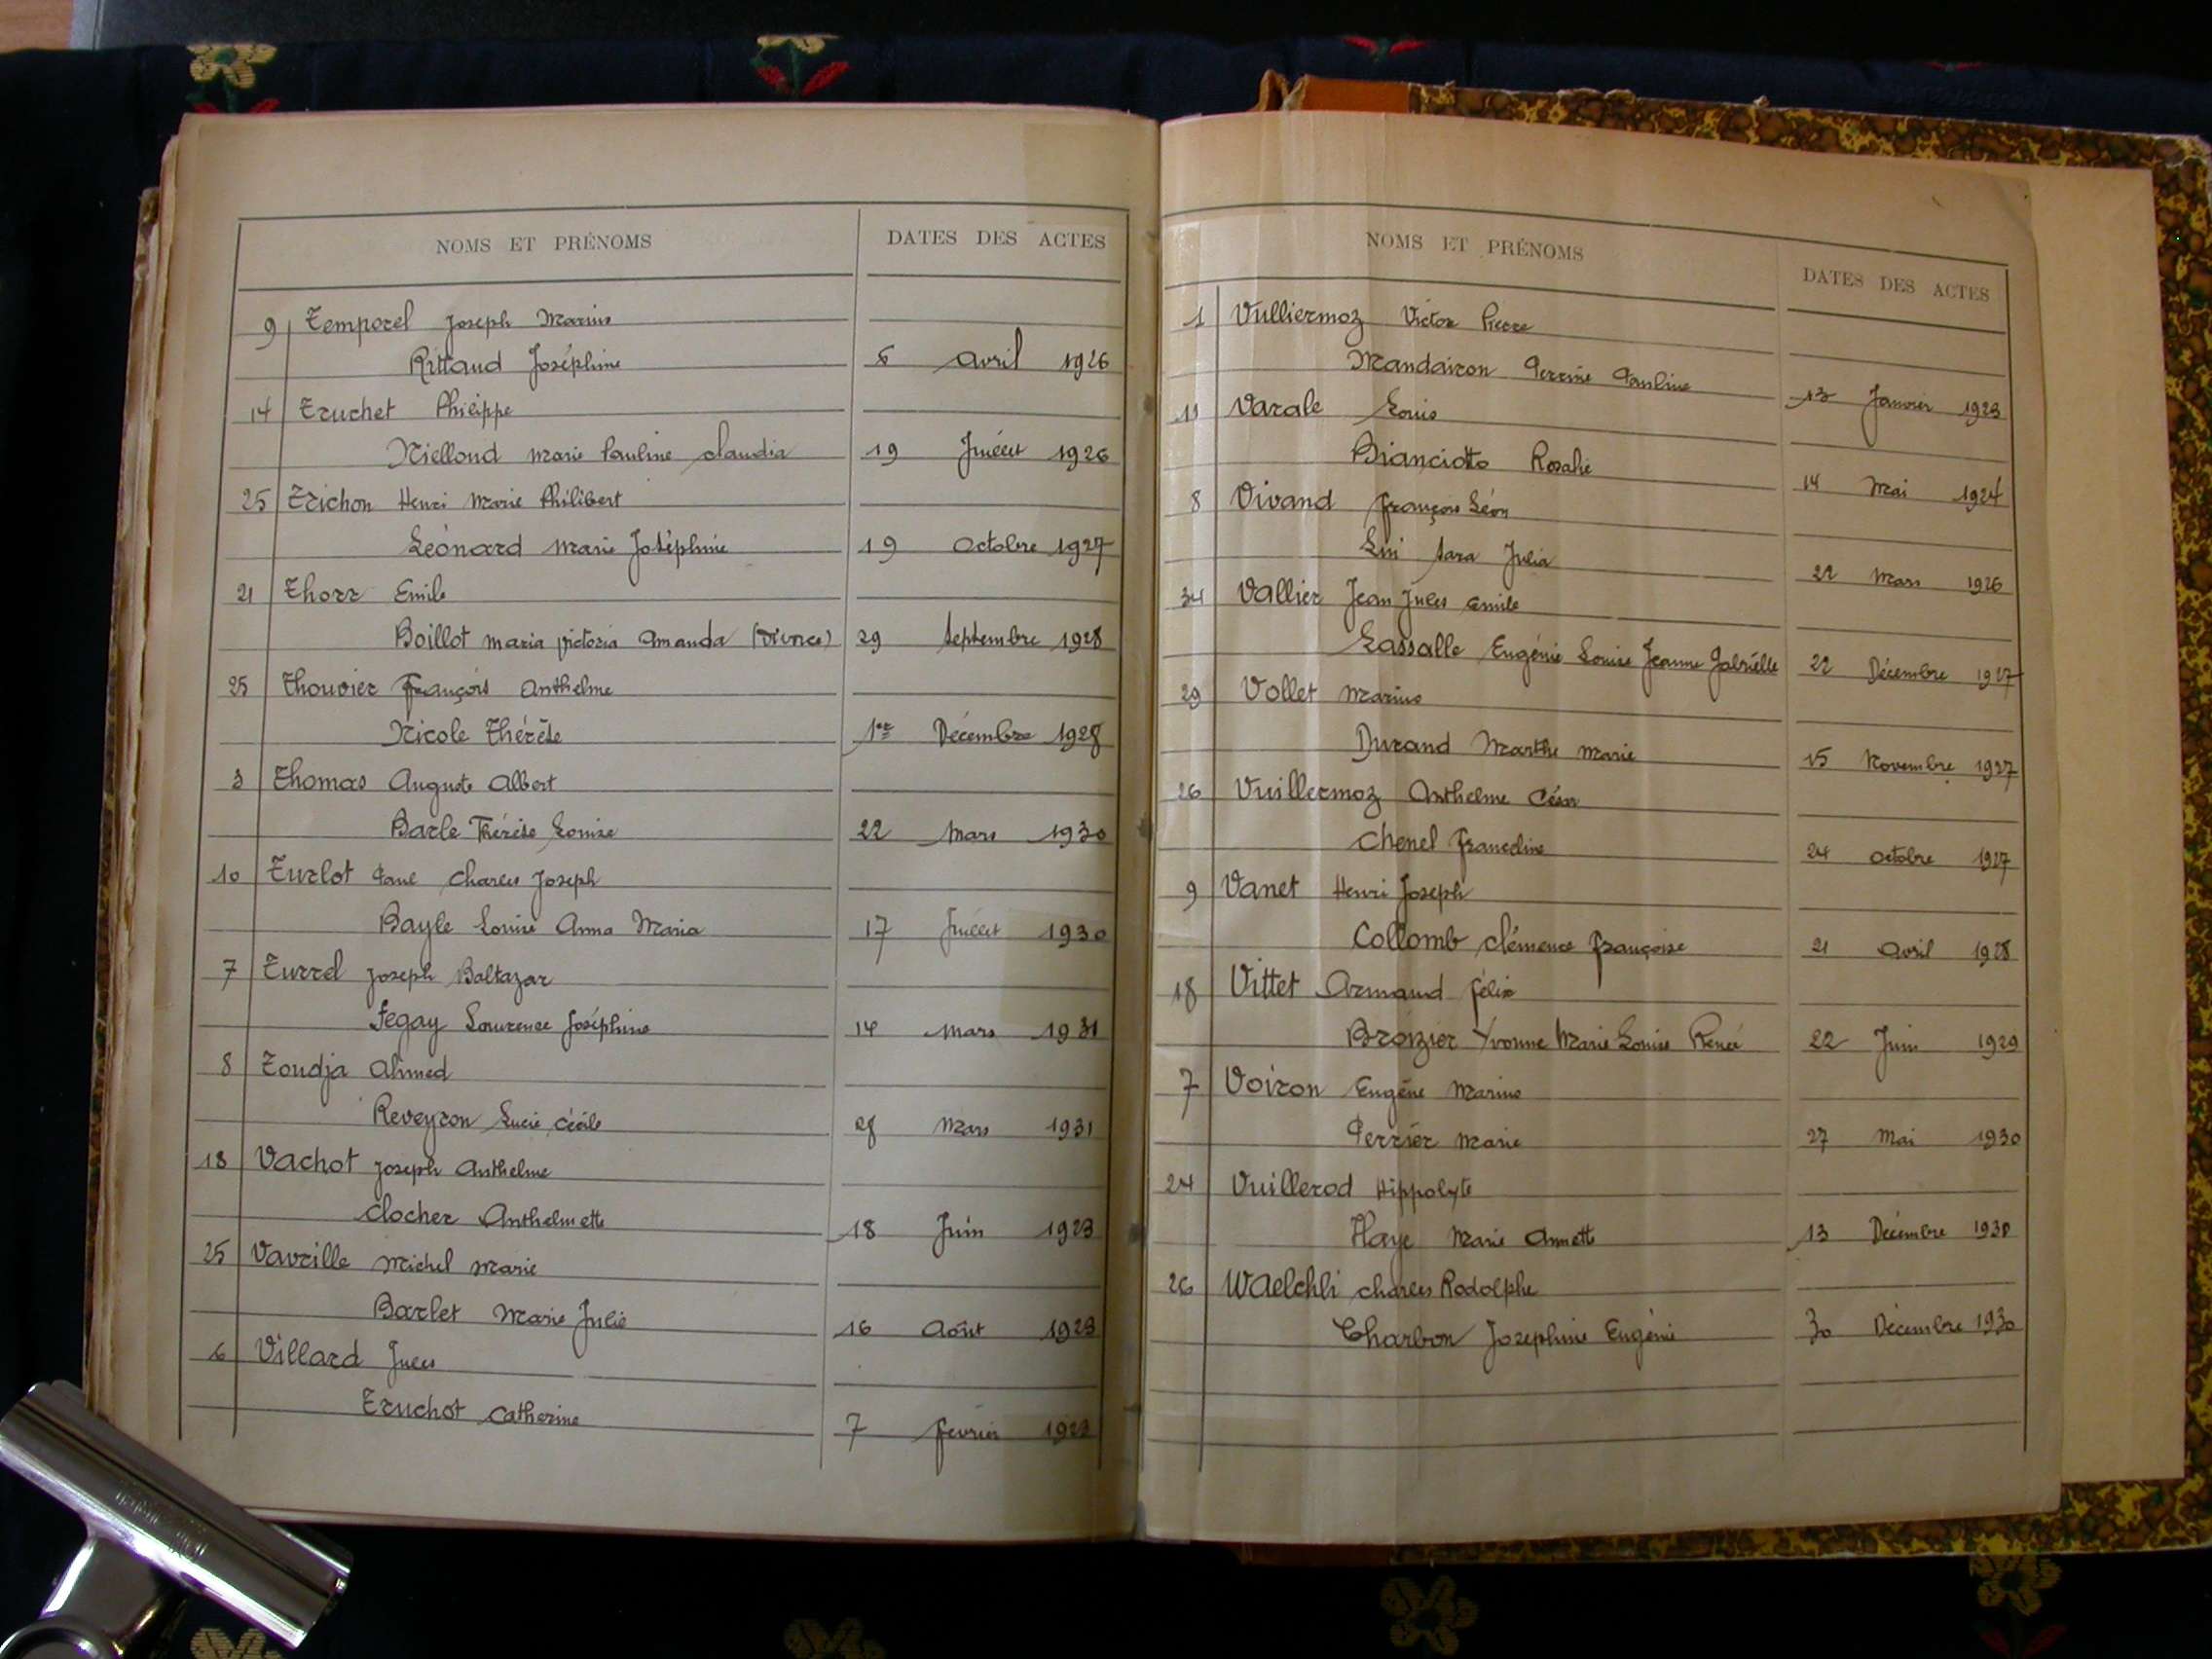 NOMS ET PRÉNOMS DATES DES ACTES
9 Temporel Joseph Marius
Rittaud Joséphine 6 Avril 1926
14 Truchet Philippe
Niellond Marie Pauline Claudia 19 Juillet 1926
25 Trichon Henri Marie Philibert
Léonard Marie Joséphine 19 Octobre 1927
21 Thorr Emile
Boillot Maria Victoria Amanda (Divorce) 29 Septembre 1928
25 Thouvier François Anthelme
Nicole Thérèse 1er Décembre 1928
3 Thomas Auguste Albert
Barle Thérèse Louise 22 Mars 1930
10 Turlot Paul Charles Joseph
Bayle Louise Anna Maria 17 Juillet 1930
7 Turrel Joseph Baltazar
Fegay Laurence Joséphine 14 Mars 1931
8 Toudja Ahmed
Reveyron Lucie Cécile 28 Mars 1931
18 Vachot Joseph Anthelme
Clocher Anthelmette 18 Juin 1923
25 Vavrille Michel Marie
Barlet Marie Julie 16 Août 1923
6 Villard Jules
Truchot Catherine 7 Février 1923
NOMS ET PRÉNOMS DATES DES ACTES
1 Vulliermoz Victor Pierre
Mandairon Perrine Pauline 13 Janvier 1923
11 Varale Louis
Bianciotto Rosalie 14 Mai 1924
8 Vivand François Léon
Sara Julia 22 Mars 1926
34 Vallier Jean Jules Emile
Lassalle Eugénie Louise Jeanne Gabrielle 22 Décembre 1927
29 Vollet Marius
Durand Marthe Marie 15 Novembre 1927
26 Vuillermoz Anthelme César
Chenel Franceline 24 Octobre 1927
9 Vanet Henri Joseph
Collomb Clémence Françoise 21 Avril 1928
18 Vittet Armand Félix
Broizier Yvonne Marie Louise Renée 22 Juin 1929
7 Voiron Eugène Marius
Perrier Marie 27 Mai 1930
24 Vuillerod Hippolyte
Haye Marie Annette 13 Décembre 1930
26 Waelchli Charles Rodolphe
Charbon Josephine Eugénie 30 Décembre 1930